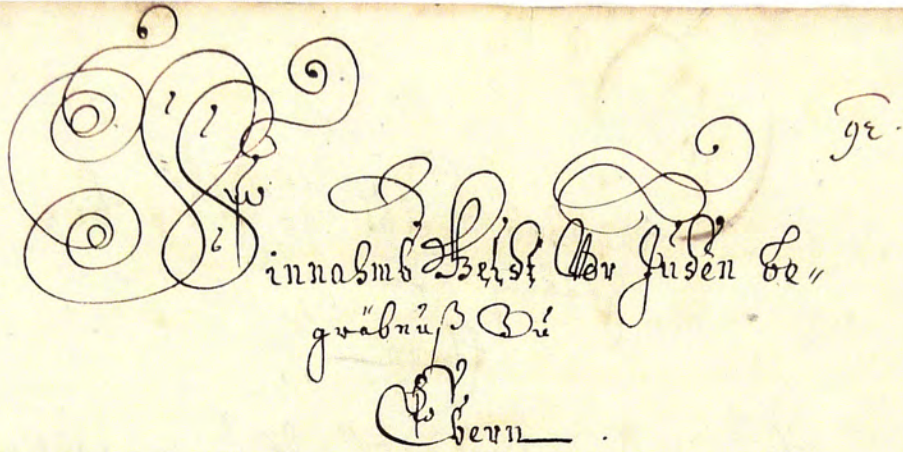 92.
Einnahmb Geldt Vor Juden be„
gräbnuß Zu
Ebern